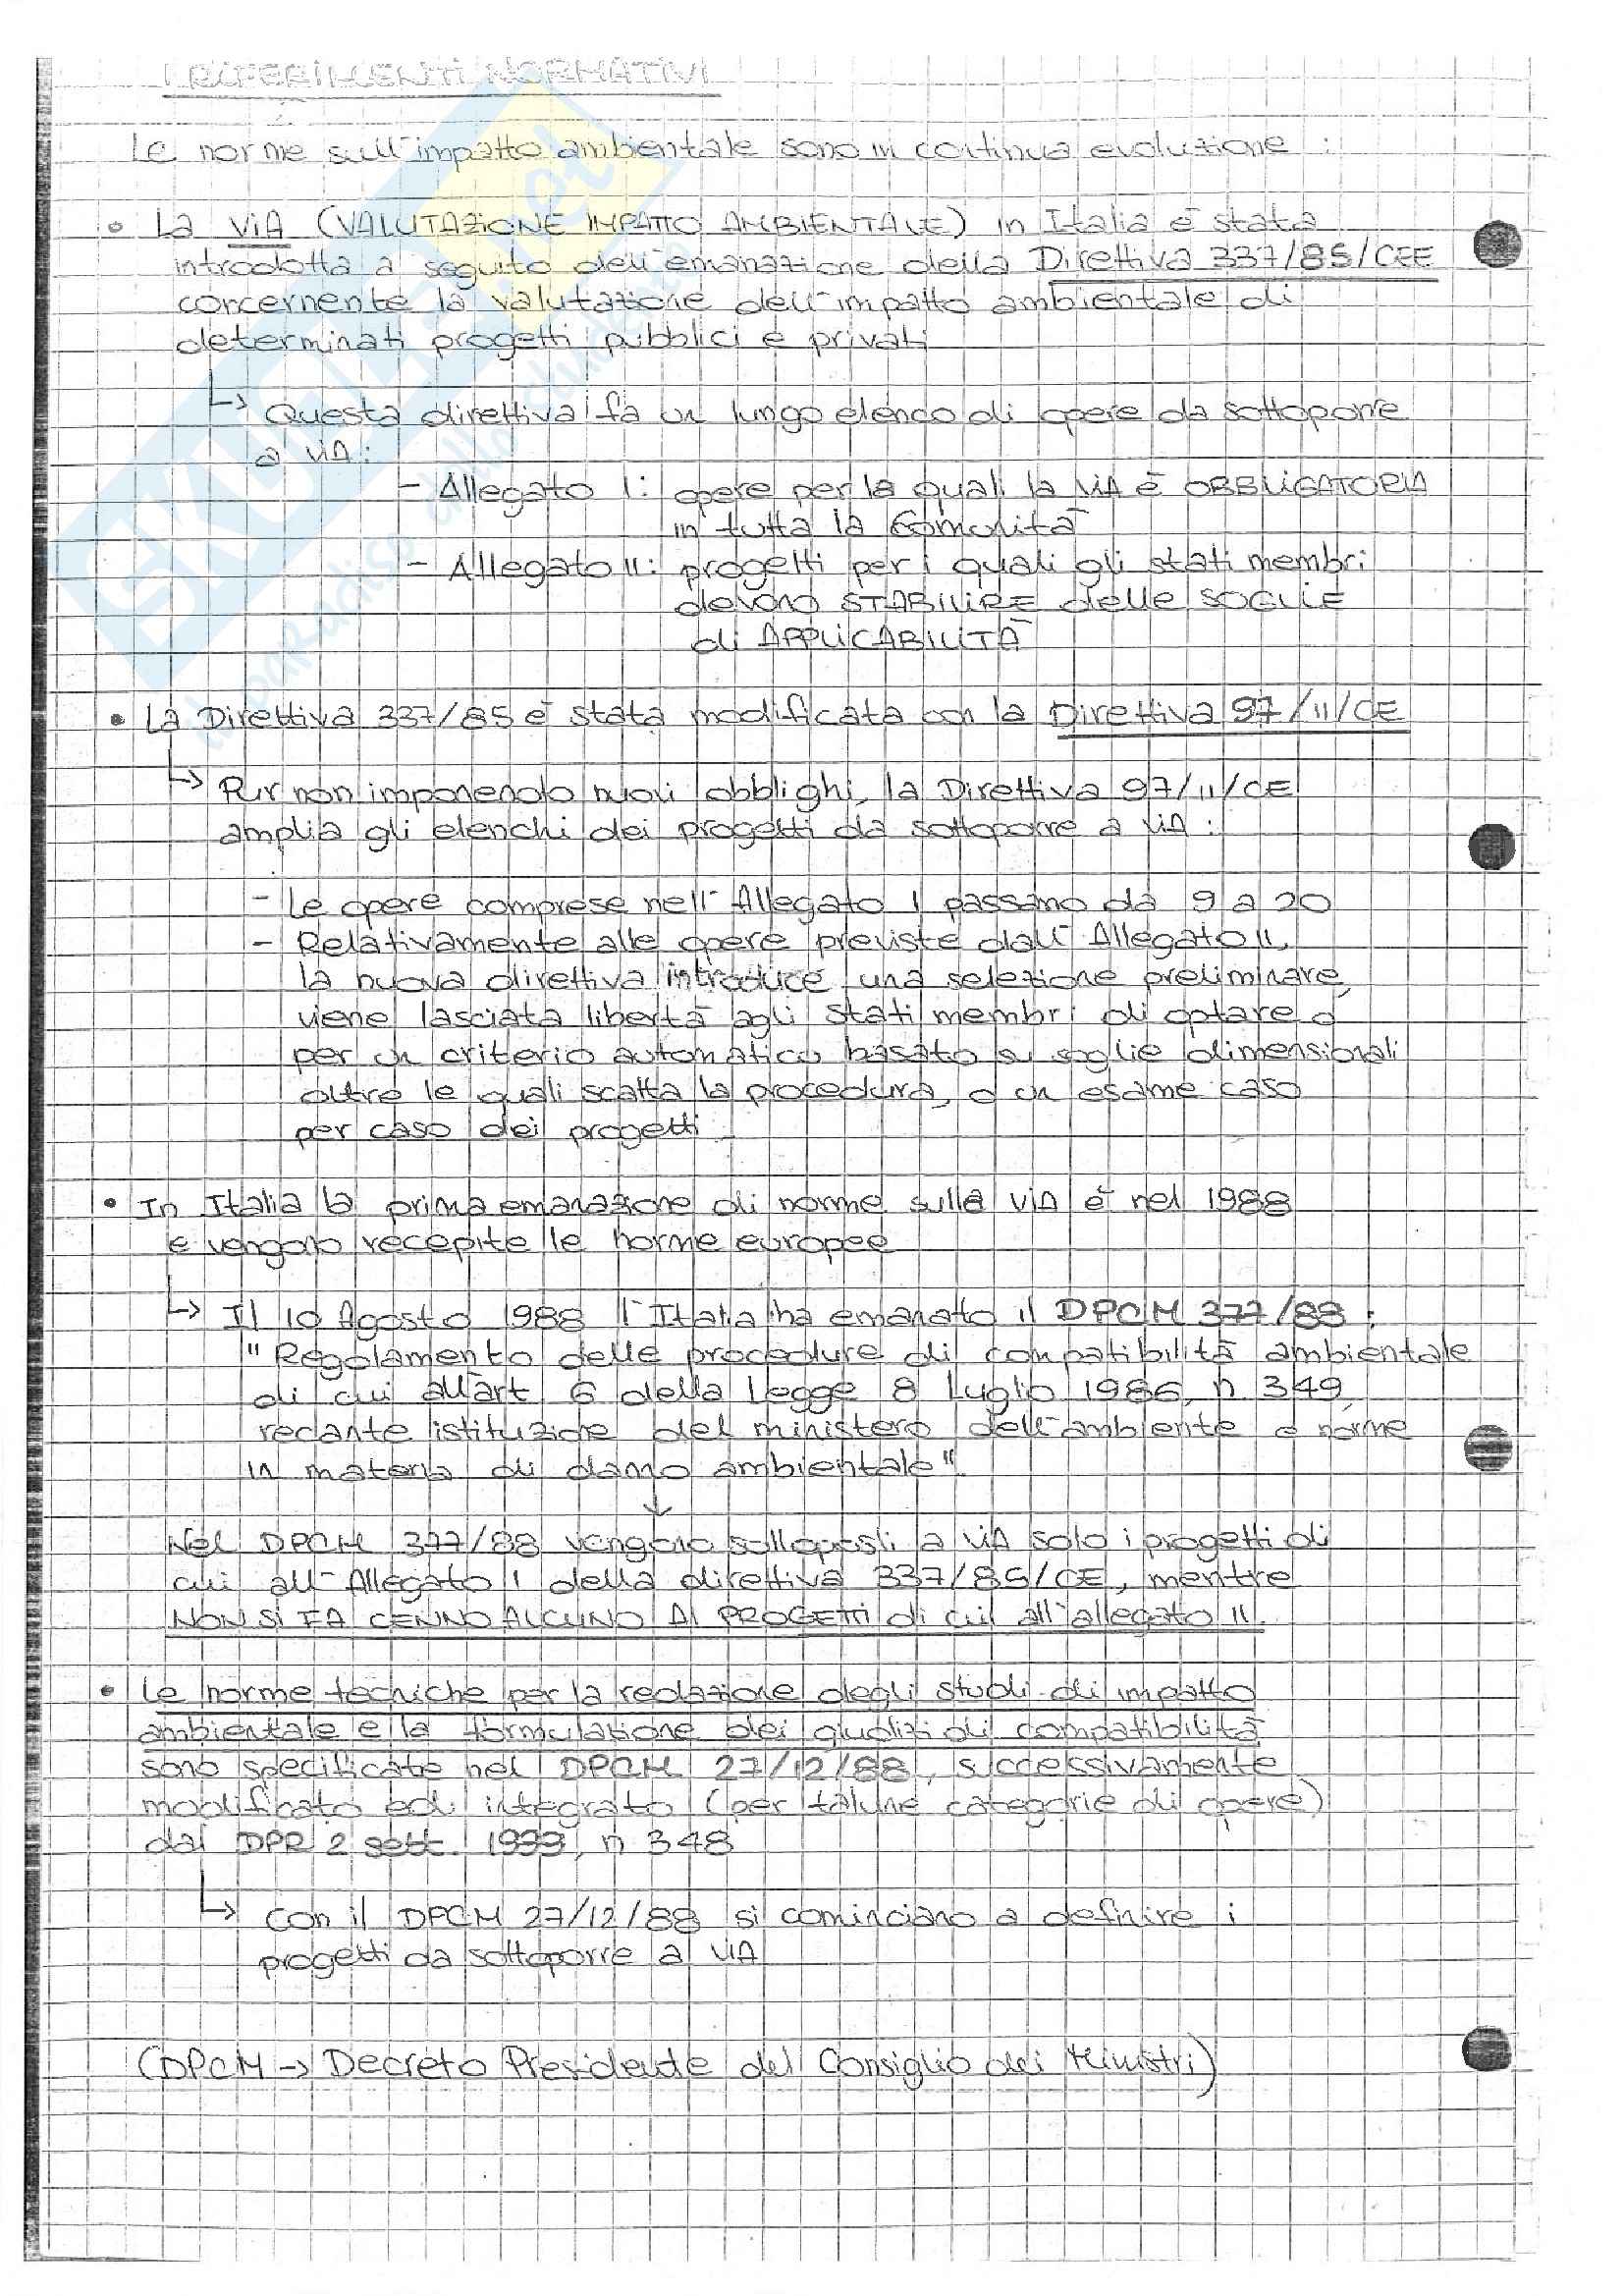 I RIFERIMENTI NORMATIVI
Le norme sull'impatto ambientale sono in continua evoluzione :
• La ViA (VALUTAZIONE IMPATTO AMBIENTALE) in Italia è stata
introdotta a seguito dell'emanazione della Direttiva 337/85/CEE
concernente la valutazione dell'impatto ambientale di
determinati progetti pubblici e privati
↳ Questa direttiva fa un lungo elenco di opere da sottoporre
a ViA :
- Allegato I : opere per le quali la ViA è OBBLIGATORIA
in tutta la Comunità
- Allegato II : progetti per i quali gli stati membri
devono STABILIRE delle SOGLIE
di APPLICABILITÀ
• La Direttiva 337/85 è stata modificata con la Direttiva 97/11/CE
↳ Pur non imponendo nuovi obblighi, la Direttiva 97/11/CE
amplia gli elenchi dei progetti da sottoporre a ViA :
- Le opere comprese nell'Allegato I passano da 9 a 20
- Relativamente alle opere previste dall'Allegato II,
la nuova direttiva introduce una selezione preliminare,
viene lasciata libertà agli Stati membri di optare o
per un criterio automatico basato su soglie dimensionali
oltre le quali scatta la procedura, o un esame caso
per caso dei progetti
• In Italia la prima emanazione di norme sulla ViA è nel 1988
e vengono recepite le norme europee
↳ Il 10 Agosto 1988 l'Italia ha emanato il DPCM 377/88 :
"Regolamento delle procedure di compatibilità ambientale
di cui all'art 6 della Legge 8 Luglio 1986, n 349,
recante istituzione del ministero dell'ambiente e norme
in materia di danno ambientale"
↓
Nel DPCM 377/88 vengono sottoposti a ViA solo i progetti di
cui all'Allegato I della direttiva 337/85/CE, mentre
NON SI FA CENNO ALCUNO AI PROGETTI di cui all'allegato II.
• Le norme tecniche per la redazione degli studi di impatto
ambientale e la formulazione dei giudizi di compatibilità
sono specificate nel DPCM 27/12/88, successivamente
modificato ed integrato (per talune categorie di opere)
dal DPR 2 sett. 1999, n 348
↳ Con il DPCM 27/12/88 si cominciano a definire i
progetti da sottoporre a ViA
(DPCM → Decreto Presidente del Consiglio dei Ministri)
SKUOLA.net
il paradiso dello studente